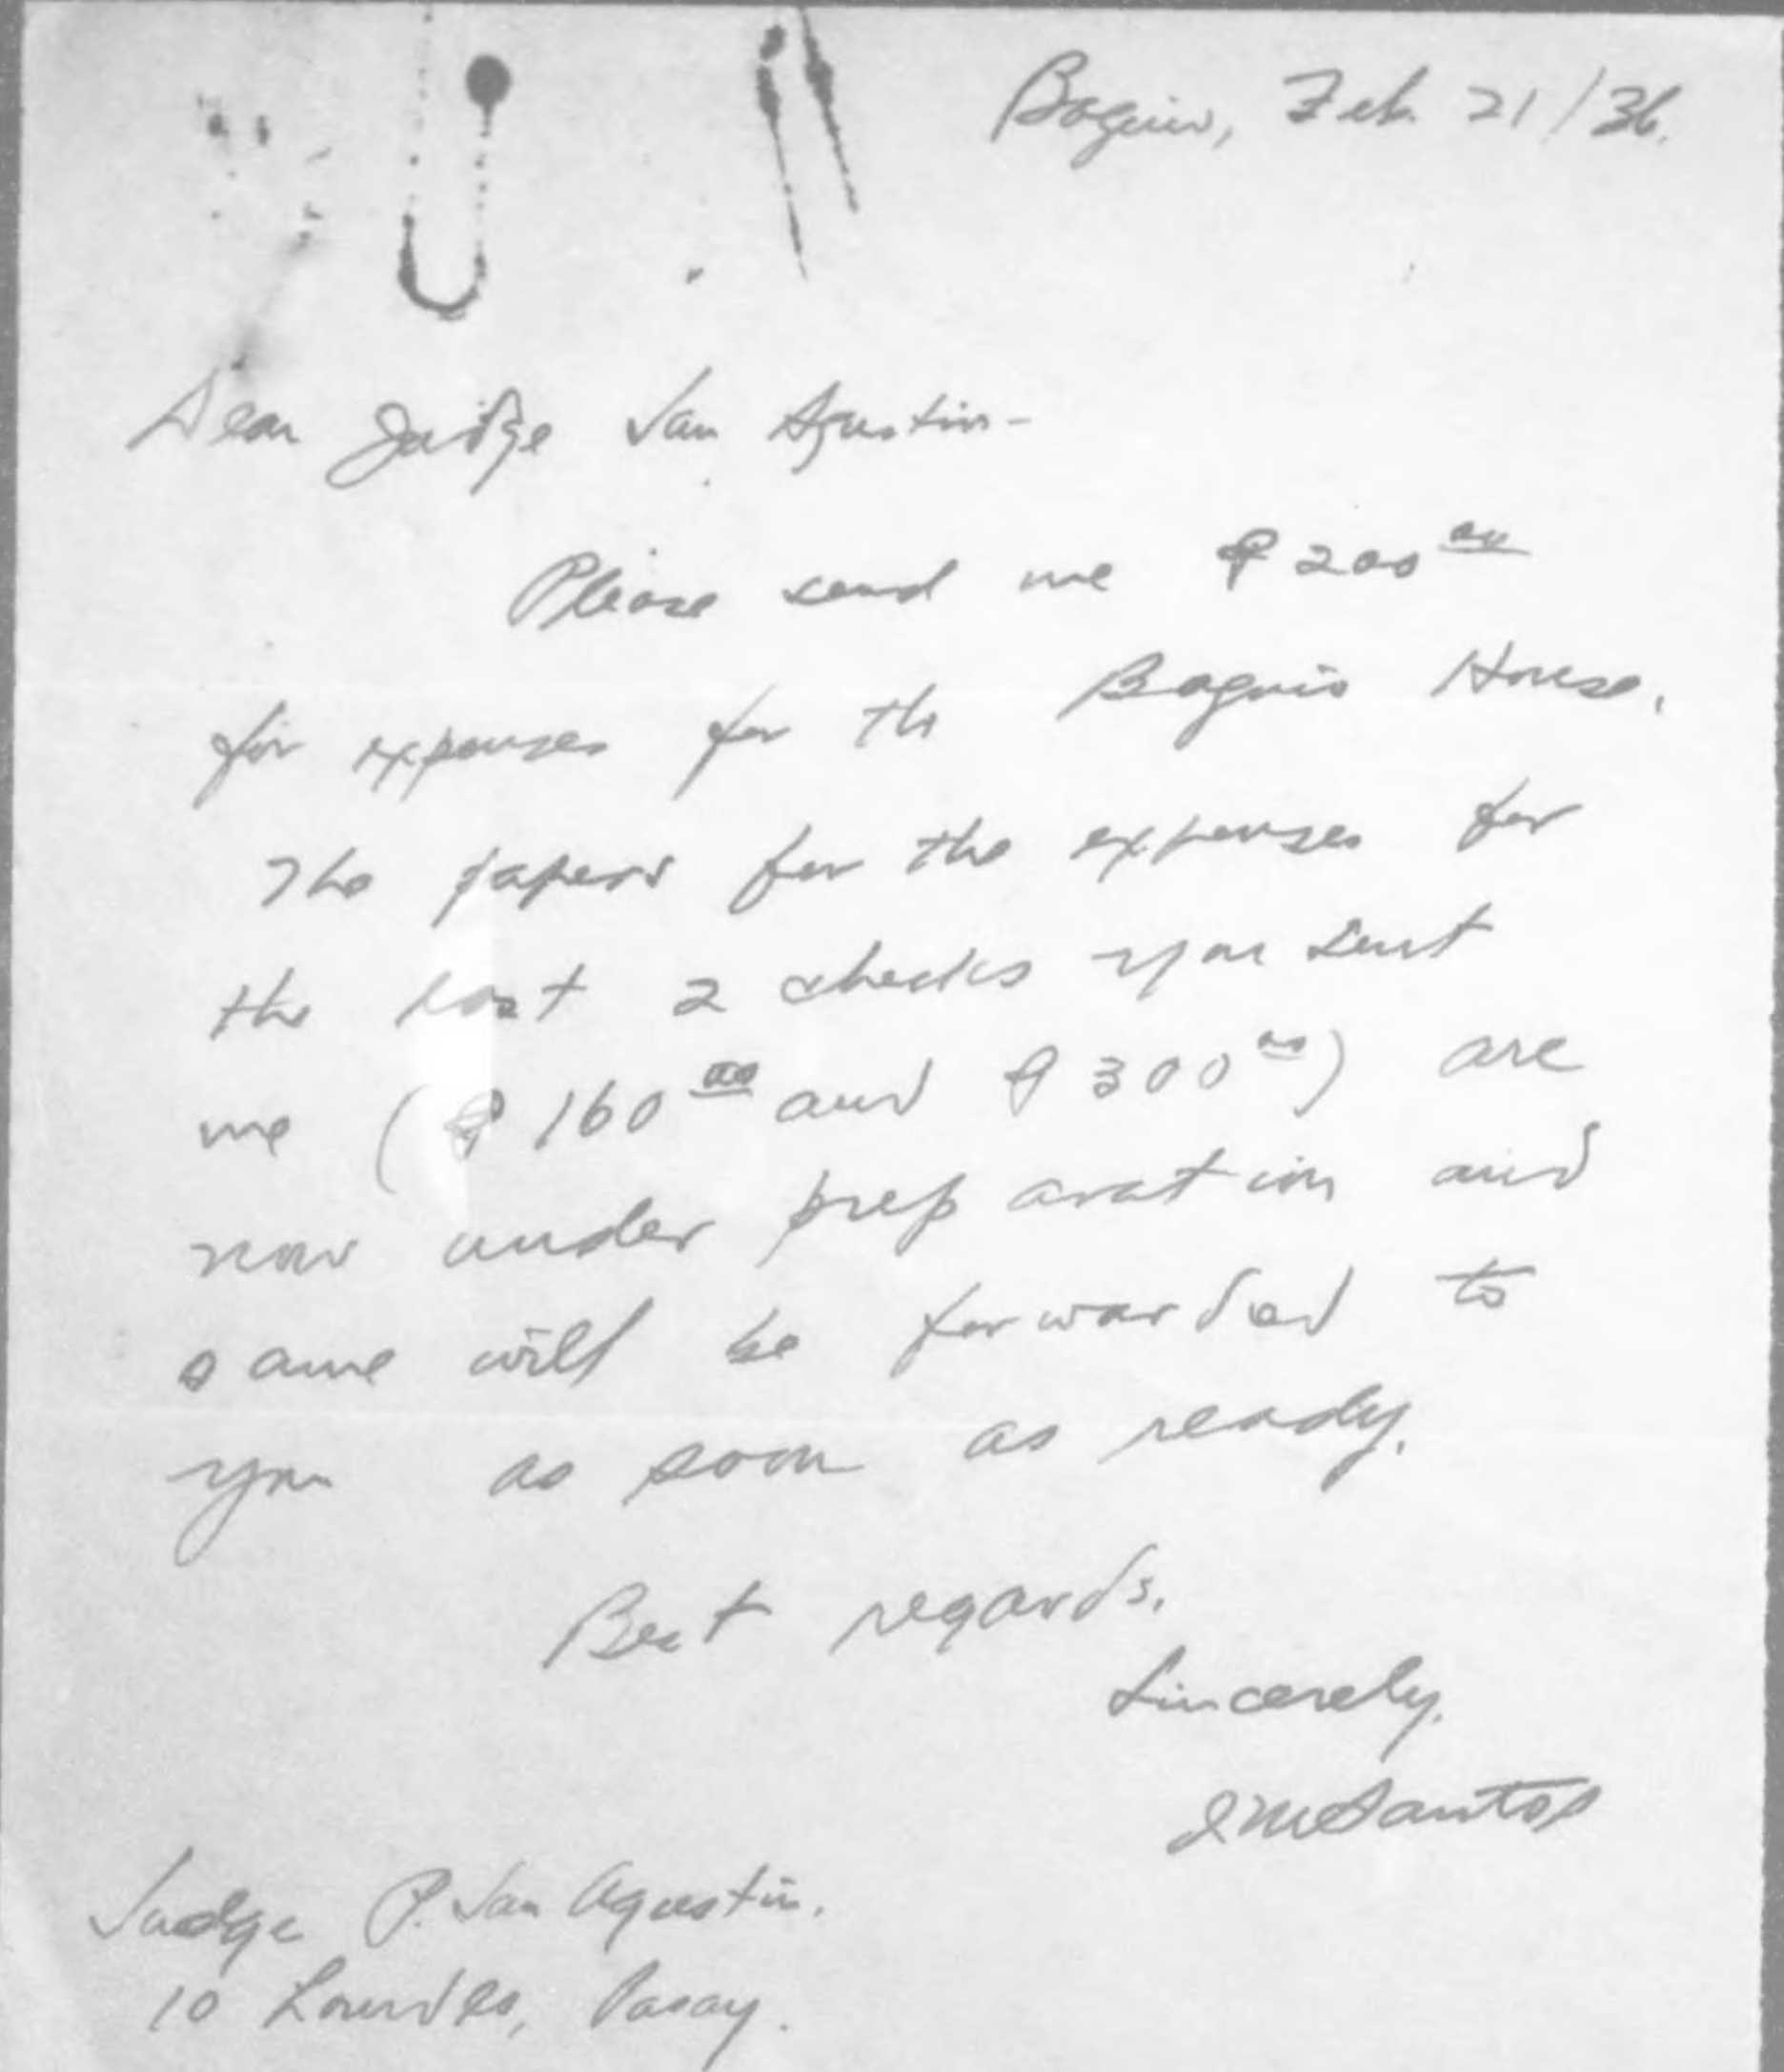 Baguio, Feb. 21/36.
Dear Judge San Agustin-
Please send me ₱200.00
for expenses for the Baguio House.
The papers for the expenses for
the last 2 checks you sent
me (₱160.00 and ₱300.00) are
now under preparation and
same will be forwarded to
you as soon as ready.
Best regards.
Sincerely,
JMSantos
Judge P. San Agustin.
10 Lourdes, Pasay.